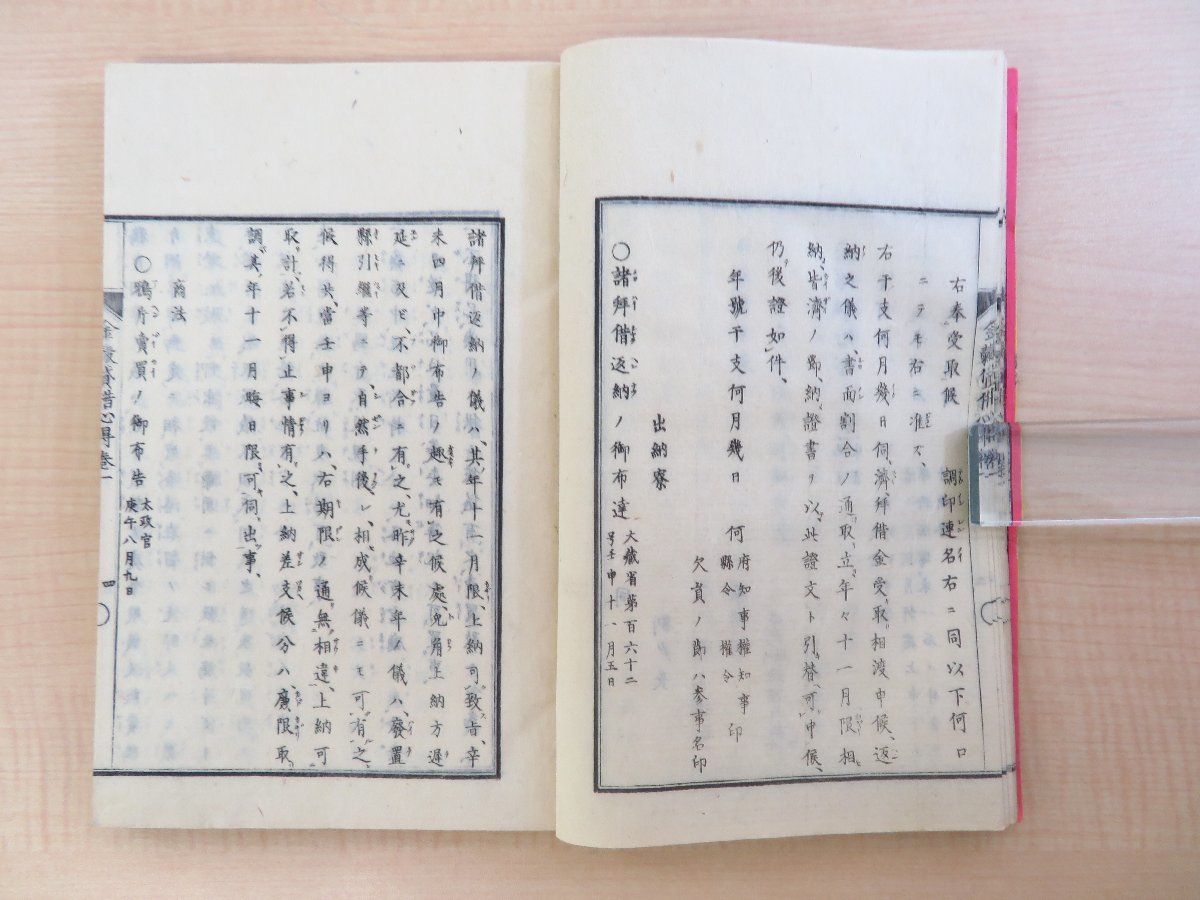 右奉受取候　調印連名右ニ同以下何レ
ニテモ右ニ准ズ
右干支何月幾日伺濟拜借金受取相渡申候、返
納之儀ハ、書面割合ノ通取立年々十一月限相
納、皆濟ノ節、納證書ヲ以、此證文ト引替可申候、
仍後證如件、
年號干支何月幾日　何　府知事權知事　印
縣令　權令
欠員ノ節ハ參事名印
出納寮
〇諸拜借返納ノ御布達　大藏省第百六十二
号壬申十一月五日
諸拜借返納ノ儀、其年十一月限、上納可致旨、辛
未四月中御布告ノ趣モ有之候處、兎角上納方遲
延及ビ、不都合ニ有之、尤昨辛未年ノ儀ハ、廢置
縣引繼等ニテ、自然手後レ、相成候儀ニモ可有之
候得共、當壬申ヨリハ、右期限ノ通無相違、上納可
取計、若不得止事情有之、上納差支候分ハ、
調、其年十一月晦日限可伺出事、
商法
〇鴉片賣買ノ御布告　太政官
庚午八月九日
金穀貸借心得卷一
四